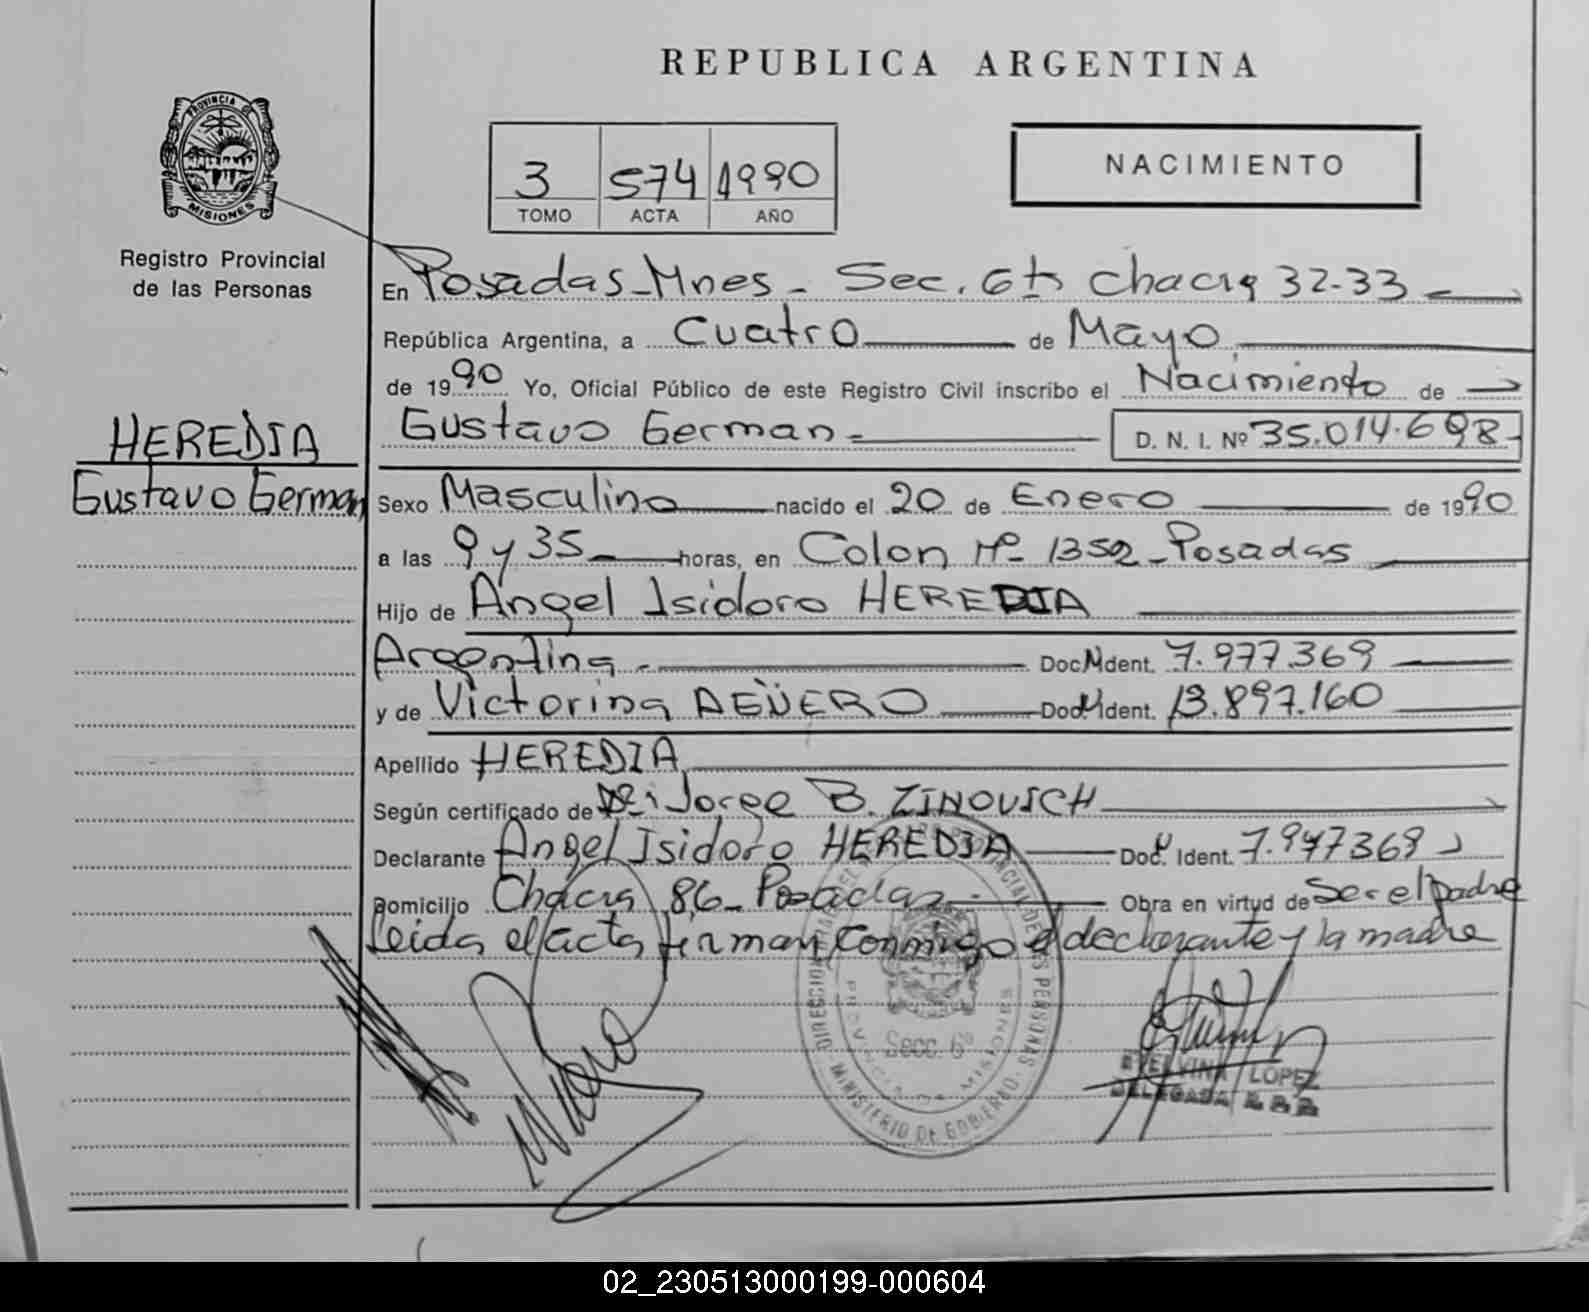 REPUBLICA ARGENTINA
PROVINCIA DE MISIONES
Registro Provincial
de las Personas
3 574 1990
TOMO ACTA AÑO
NACIMIENTO
En Posadas-Mnes- Sec. 6ta Chacra 32-33
República Argentina, a Cuatro de Mayo
de 1990 Yo, Oficial Público de este Registro Civil inscribo el Nacimiento de
HEREDIA
Gustavo German
Gustavo German D. N. I. Nº 35.014.698
Sexo Masculino nacido el 20 de Enero de 1990
a las 9 y 35 horas, en Colon Nº 1352-Posadas
Hijo de Angel Isidoro HEREDIA
Argentina Doc. Ident. 7.977.369
y de Victorina AGÜERO Doc. Ident. 13.897.160
Apellido HEREDIA
Según certificado de Jorge B. ZINOVICH
Declarante Angel Isidoro HEREDIA Doc. Ident. 7.947369
Domicilio Chacra 86-Posadas Obra en virtud de Ser el padre
Leida el acta firman conmigo el declarante y la madre
DIRECCION GRAL DEL REG. PROVINCIAL DE LAS PERSONAS
PROVINCIA DE MISIONES
Secc. 6ª
MINISTERIO DE GOBIERNO
ETELVINA LOPEZ
DELEGADA
02_230513000199-000604